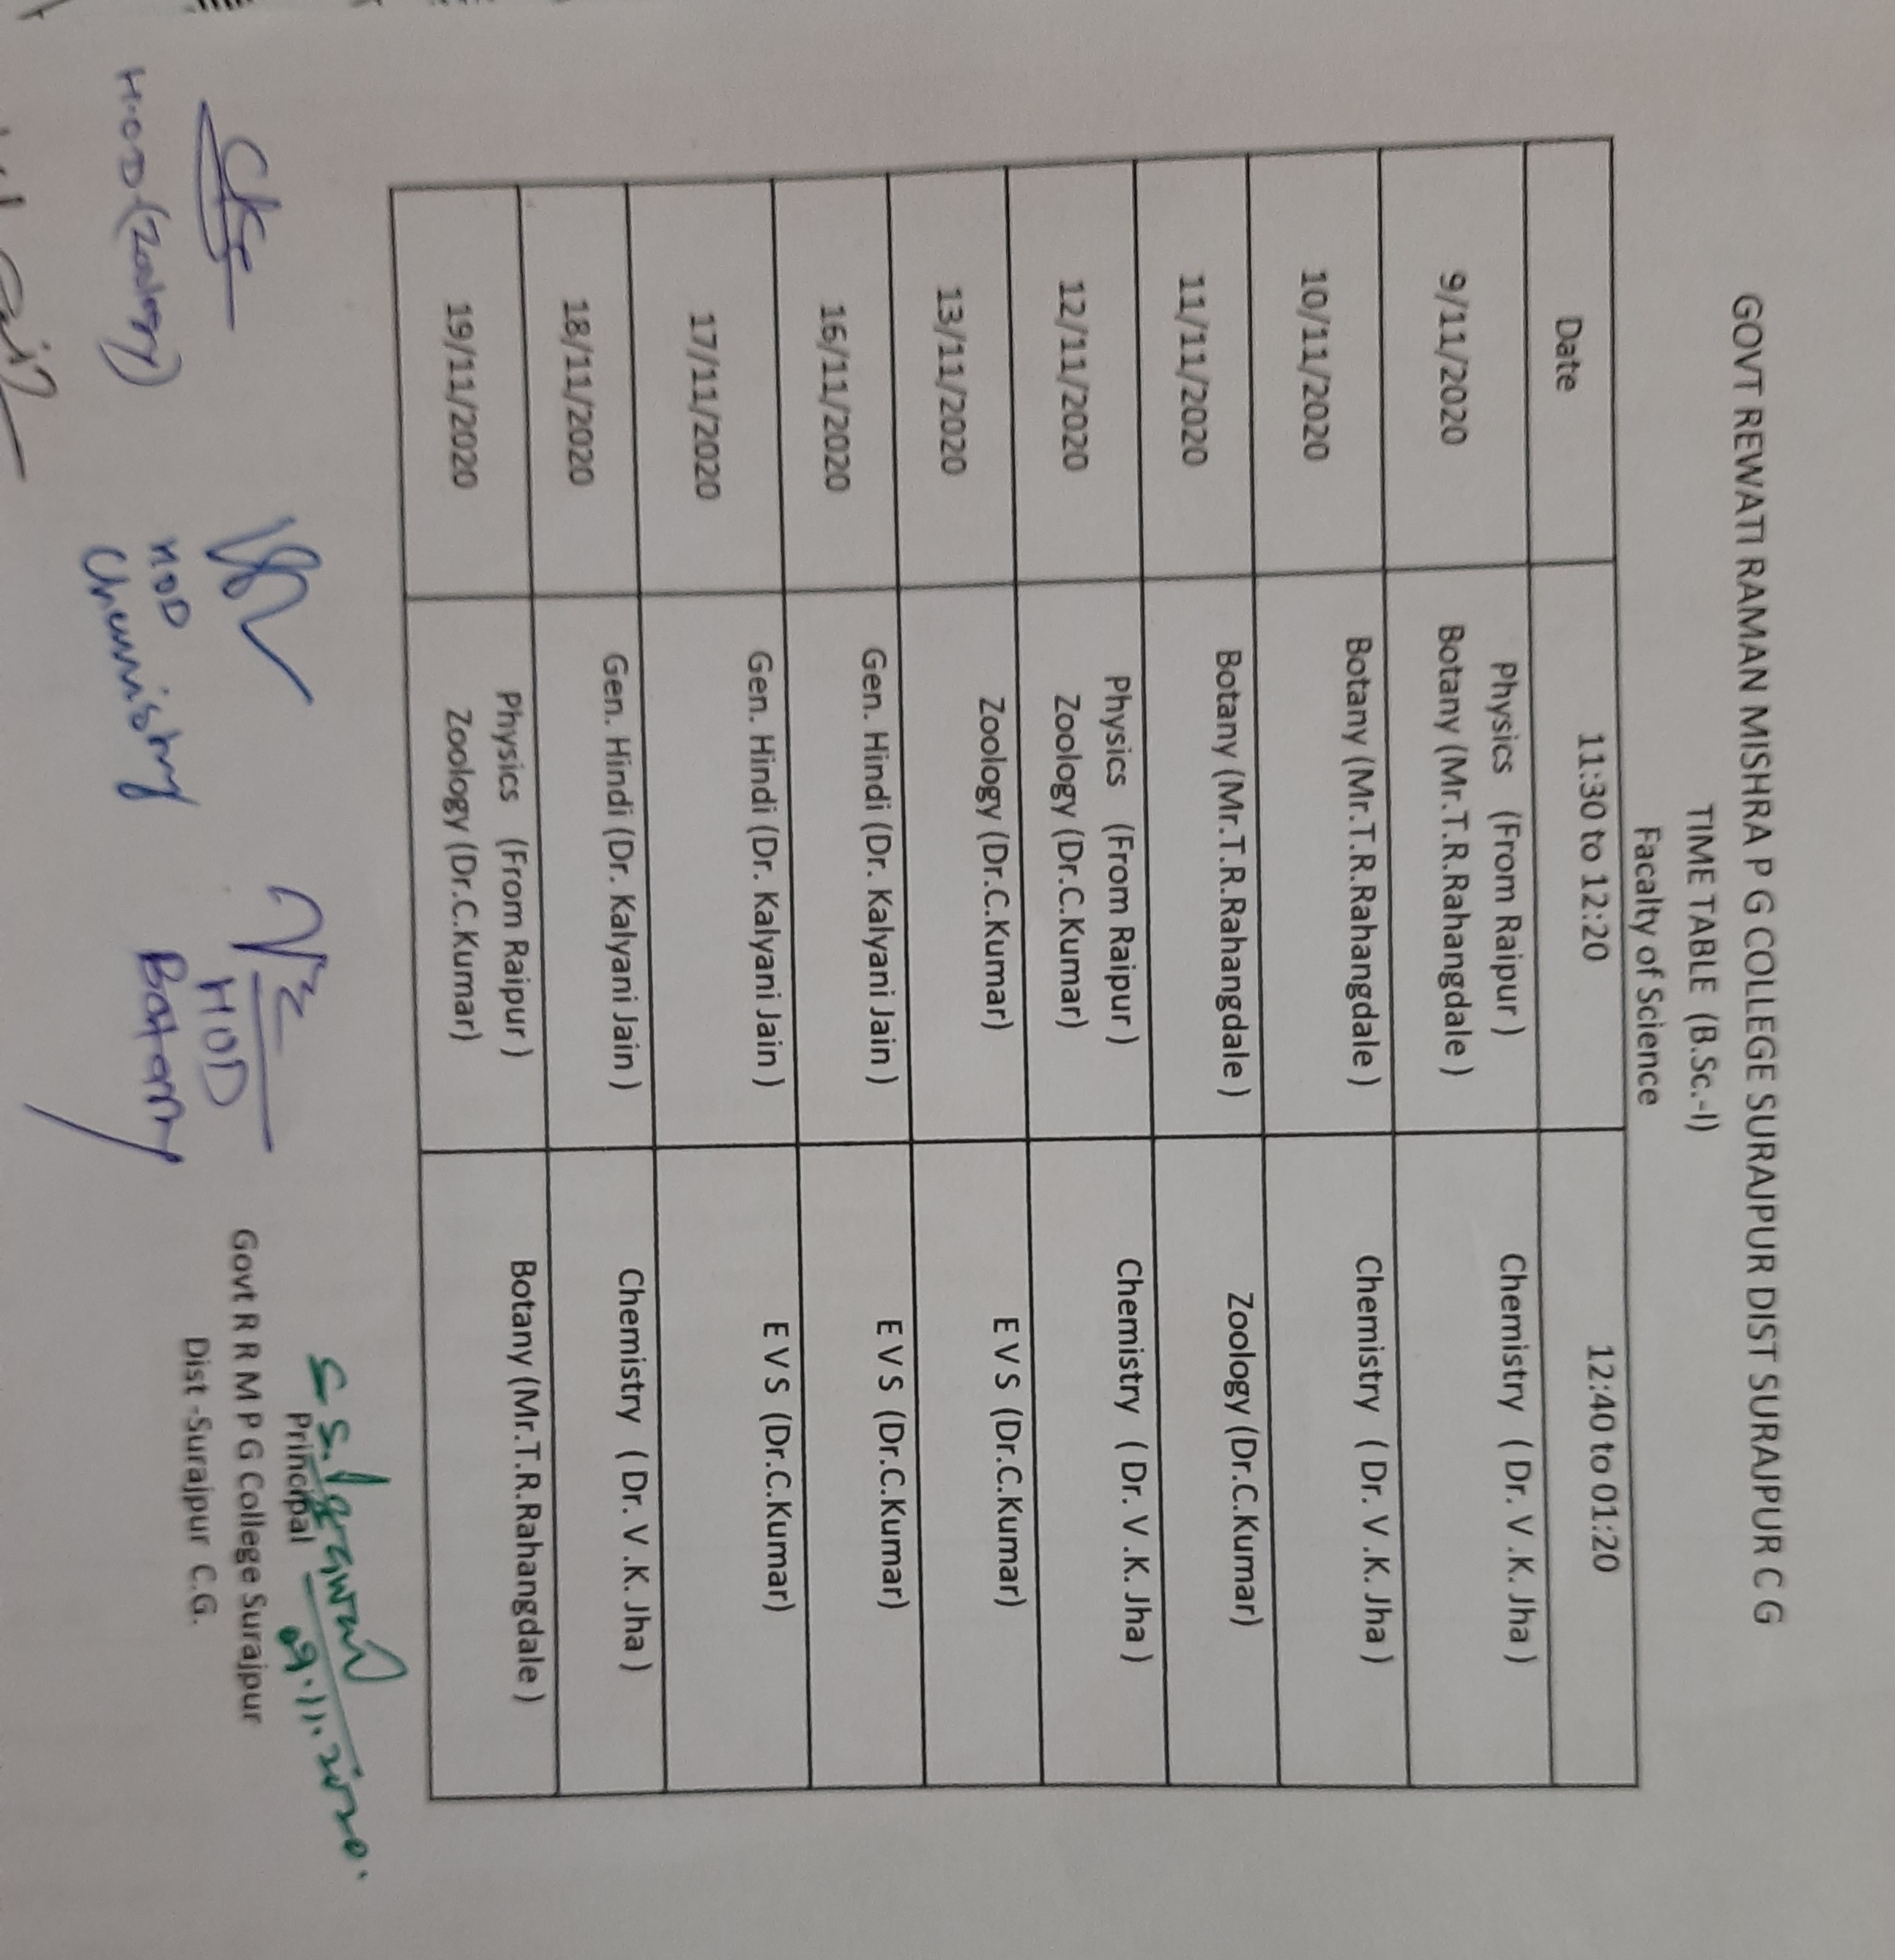 GOVT REWATI RAMAN MISHRA P G COLLEGE SURAJPUR DIST SURAJPUR C G
TIME TABLE (B.Sc.-I)
Facalty of Science
Date 11:30 to 12:20 12:40 to 01:20
9/11/2020 Physics (From Raipur ) Chemistry ( Dr. V .K. Jha )
Botany (Mr.T.R.Rahangdale )
10/11/2020 Botany (Mr.T.R.Rahangdale ) Chemistry ( Dr. V .K. Jha )
11/11/2020 Botany (Mr.T.R.Rahangdale ) Zoology (Dr.C.Kumar)
12/11/2020 Physics (From Raipur ) Chemistry ( Dr. V .K. Jha )
Zoology (Dr.C.Kumar)
13/11/2020 Zoology (Dr.C.Kumar) E V S (Dr.C.Kumar)
16/11/2020 Gen. Hindi (Dr. Kalyani Jain ) E V S (Dr.C.Kumar)
17/11/2020 Gen. Hindi (Dr. Kalyani Jain ) E V S (Dr.C.Kumar)
18/11/2020 Gen. Hindi (Dr. Kalyani Jain ) Chemistry ( Dr. V .K. Jha )
19/11/2020 Physics (From Raipur ) Botany (Mr.T.R.Rahangdale )
Zoology (Dr.C.Kumar)
H.O.D (Zoology)
HOD
Chemistry
HOD
Botany
09.11.2020.
Principal
Govt R R M P G College Surajpur
Dist -Surajpur C.G.